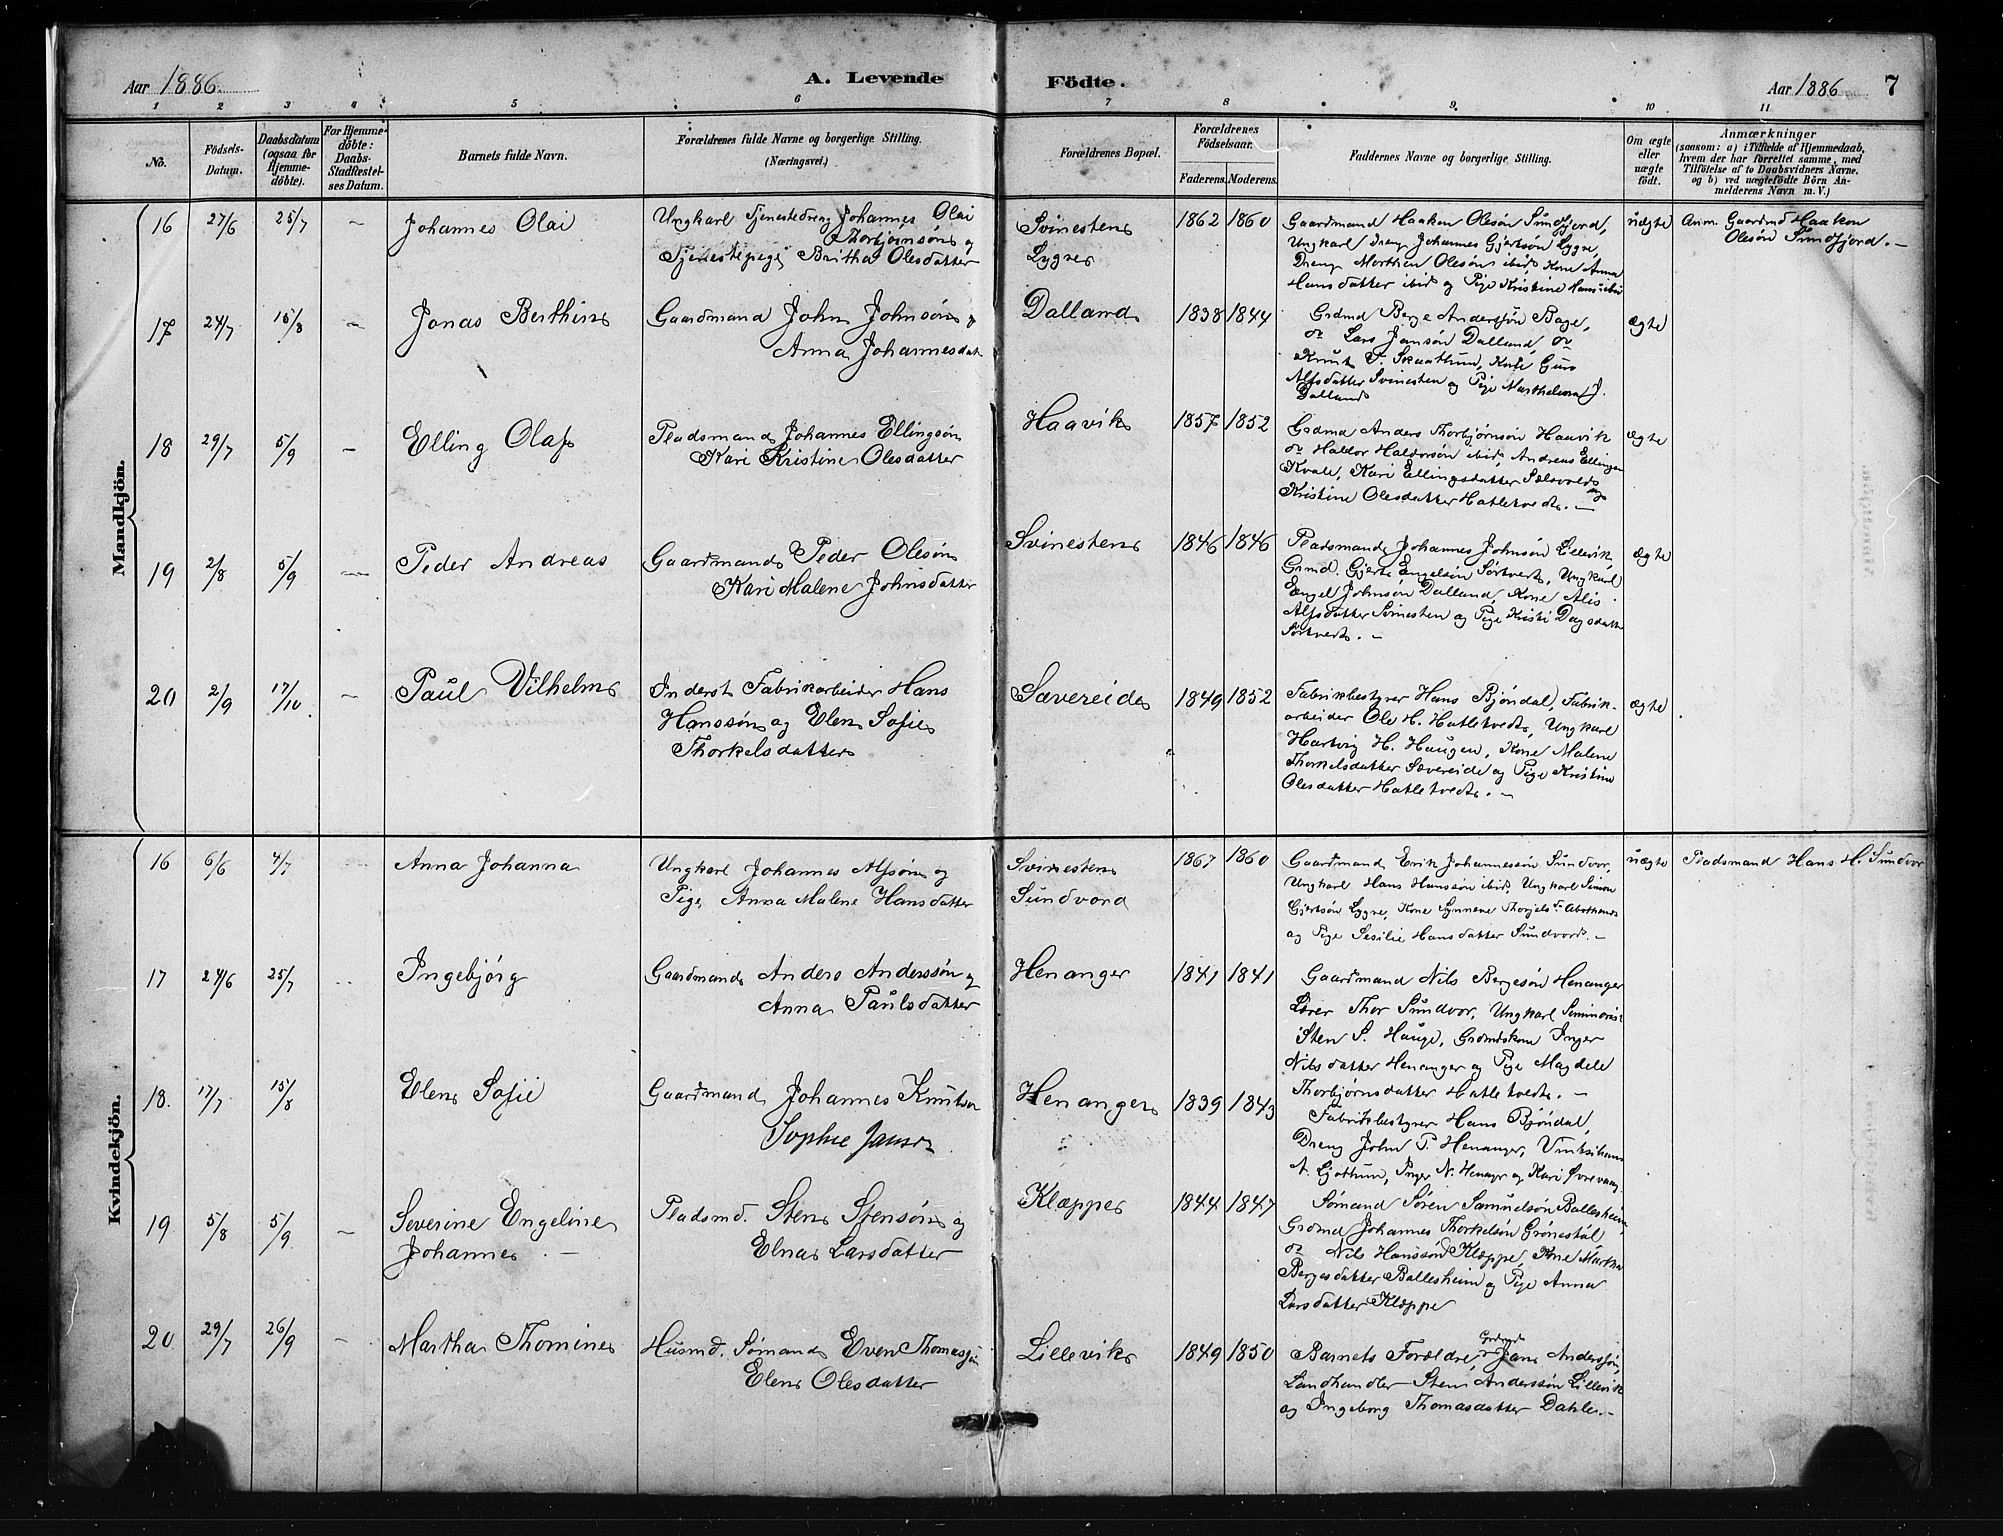 Aar 1886. A. Levende Födte. Aar 1886 7
1 2 3 4 5 6 7 8 9 10 11
No.
Födsels-Datum.
Daabsdatum (ogsaa for Hjemmedöbte).
For Hjemmedöbte: Daabs-Stadfæstelses Datum.
Barnets fulde Navn.
Forældrenes fulde Navne og borgerlige Stilling. (Næringsvei.)
Forældrenes Bopæl.
Forældrenes Födselsaar. Faderens. Moderens.
Faddernes Navne og borgerlige Stilling.
Om ægte eller uægte födt.
Anmærkninger (saasom: a) i Tilfælde af Hjemmedaab, hvem der har forrettet samme, med Tilföielse af to Daabsvidners Navne. og b) ved uægtefödte Börn Anmelderens Navn m. V.)
Mandkjön.
16 27/6 25/7 – Johannes Olai
Ungkarl Tjenestedreng Johannes Olai
Thorbjørnsøn og
Tjenestepige Britha Olesdatter
Svinesten
Lygre
1862 1860
Gaardmand Haakon Olesøn Sundfjord,
Ungkarl Dreng Johannes Gjertsøn Lygre,
Dreng Morthen Olesøn ibid, Kone Anna
Hansdatter ibid og Pige Kristine Hans ibid
uægte
Anm. Gaardmd Haakon
Olesøn Sundfjord. –
17 24/7 15/8 – Jonas Berthin
Gaardmand John Johnsøn og
Anna Johannesdat
Dalland
1838 1844
Grdmd Berge Anderssøn Bage,
do Lars Jansøn Dalland, do
Knut T. Skaathun, Kone Guro
Alfsdatter Svinesten og Pige Marthelena J.
Dalland
ægte
18 29/7 5/9 – Elling Olaf
Pladsmand Johannes Ellingsøn
Kari Kristine Olesdatter
Haavik
1857 1852
Grdmd Anders Thorbjørnsøn Haavik
do Haldor Haldorsøn ibid, Andreas Ellingsen
Kvale, Kari Ellingsdatter Sælsvold og
Kristine Olesdatter Hatletvedt. –
ægte
19 2/8 5/9 – Peder Andreas
Gaardmand Peder Olesøn
Kari Malene Johnsdatter
Svinesten
1846 1846
Pladsmand Johannes Johnsøn Lillevik,
Grmd. Gjert Engelsøn Sørtvedt, Ungkarl
Engel Johnsøn Dalland, Kone Alis
Alfsdatter Svinesten og Pige Kristi Dagsdatt
Sørtvedt. –
ægte
20 2/9 17/10. – Paul Vilhelm
Inderst Fabrikarbeider Hans
Hanssøn og Elen Sofie
Thorkelsdatter
Sævereide
1849 1852
Fabrikbestyrer Hans Bjøndal, Fabrik-
arbeider Ole H. Hatletvedt, Ungkarl
Hartvig H. Haugen, Kone Malene
Thorkelsdatter Sævereide og Pige Kristine
Olesdatter Hatletvedt. –
ægte
Kvindekjön.
16 6/6 4/7 Anna Johanna
Ungkarl Johannes Alfsøn og
Pige Anna Malene Hansdatter
Svinesten
Sundvord
1867 1860
Gaardmand Erik Johannessøn Sundvor,
Ungkarl Hans Hanssøn ibid, Ungkarl Simon
Gjertsøn Lygre, Kone Synneve
og Pige Sesilie Hansdatter Sundvord. –
uægte
Pladsmand Hans H. Sundvor
17 24/6 25/7 Ingebjörg
Gaardmand Anders Anderssøn og
Anna Paulsdatter
Henanger
1841 1841
Gaardmand Nils Bergesøn Henanger
Lærer Thor Sundvor, Ungkarl Seminarist
Sten S. Hauge, Grdmdskone Inger
Nilsdatter Henanger og Pige Magdele
Thorbjørnsdatter Hatletvedt. –
18. 17/7 15/8 Elen Sofie
Gaardmand Johannes Knutsøn
Sophie Jansd
Henanger
1839 1843
Fabrikbestyrer Hans Bjöndal,
Dreng John P. Henanger,
N. Henager og Kari
19 5/8 5/9. – Severine Engeline
Johanne. –
Pladsmd. Sten Stensøn og
Elna Larsdatter
Klæppe
1844 1847
Sømand Søren Samuelsøn Ballesheim,
Grdmd Johannes Thorkelsøn Grønestøl
do Nils Hanssøn Klæppe, Kone Martha
Bergesdatter Ballesheim og Pige Anna
Larsdatter Klæppe
20 29/7 26/9 – Martha Thomine
Husmd. Sømand Even Thomassøn
Elen Olesdatter
Lillevik
1849 1850
Barnets Forældre, Grdmd Jan Anderssøn,
Landhandler Sten Anderssøn Lillevik
og Ingeborg Thomasdatter Dahle. –